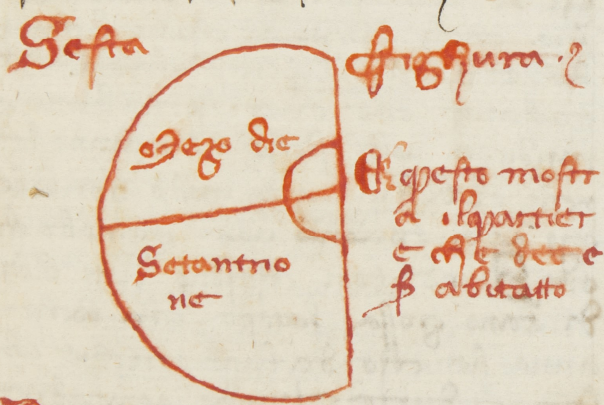 Sesta Fighura
Mezo die
Setantrio
ne
E questo mostr
a il quartier
e che dee e
abitatto